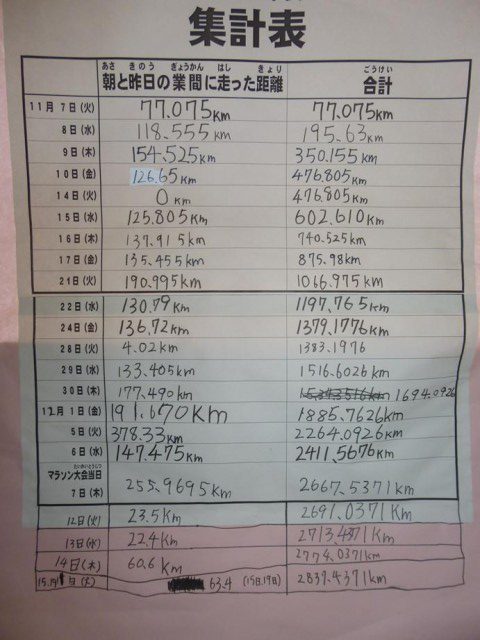 集計表
朝と昨日の業間に走った距離 合計
あさ きのう ぎょうかん はし きょり ごうけい
11月 7日(火) 77.075Km 77.075Km
8日(水) 118.555Km 195.63Km
9日(木) 154.525Km 350.155Km
10日(金) 126.65Km 476.805Km
14日(火) 0Km 476.805Km
15日(水) 125.805Km 602.610Km
16日(木) 137.915km 740.525Km
17日(金) 135.455km 875.98Km
21日(火) 190.995km 1066.975Km
22日(水) 130.79Km 1197.765km
24日(金) 136.72Km 1379.1776km
28日(火) 4.02km 1383.1976
29日(水) 133.405km 1516.6026km
30日(木) 177.490km 1694.0926
12月 1日(金) 191.670Km 1885.7626km
5日(火) 378.33Km 2264.0926km
6日(水) 147.475Km 2411.5676Km
たいかいとうじつ
マラソン大会当日
7日(木) 255.9695km 2667.5371km
12日(火) 23.5Km 2691.0371Km
13日(水) 22.4Km 2713.4371km
14日(木) 60.6Km 2774.0371km
63.4 (15日,19日) 2837.4371km